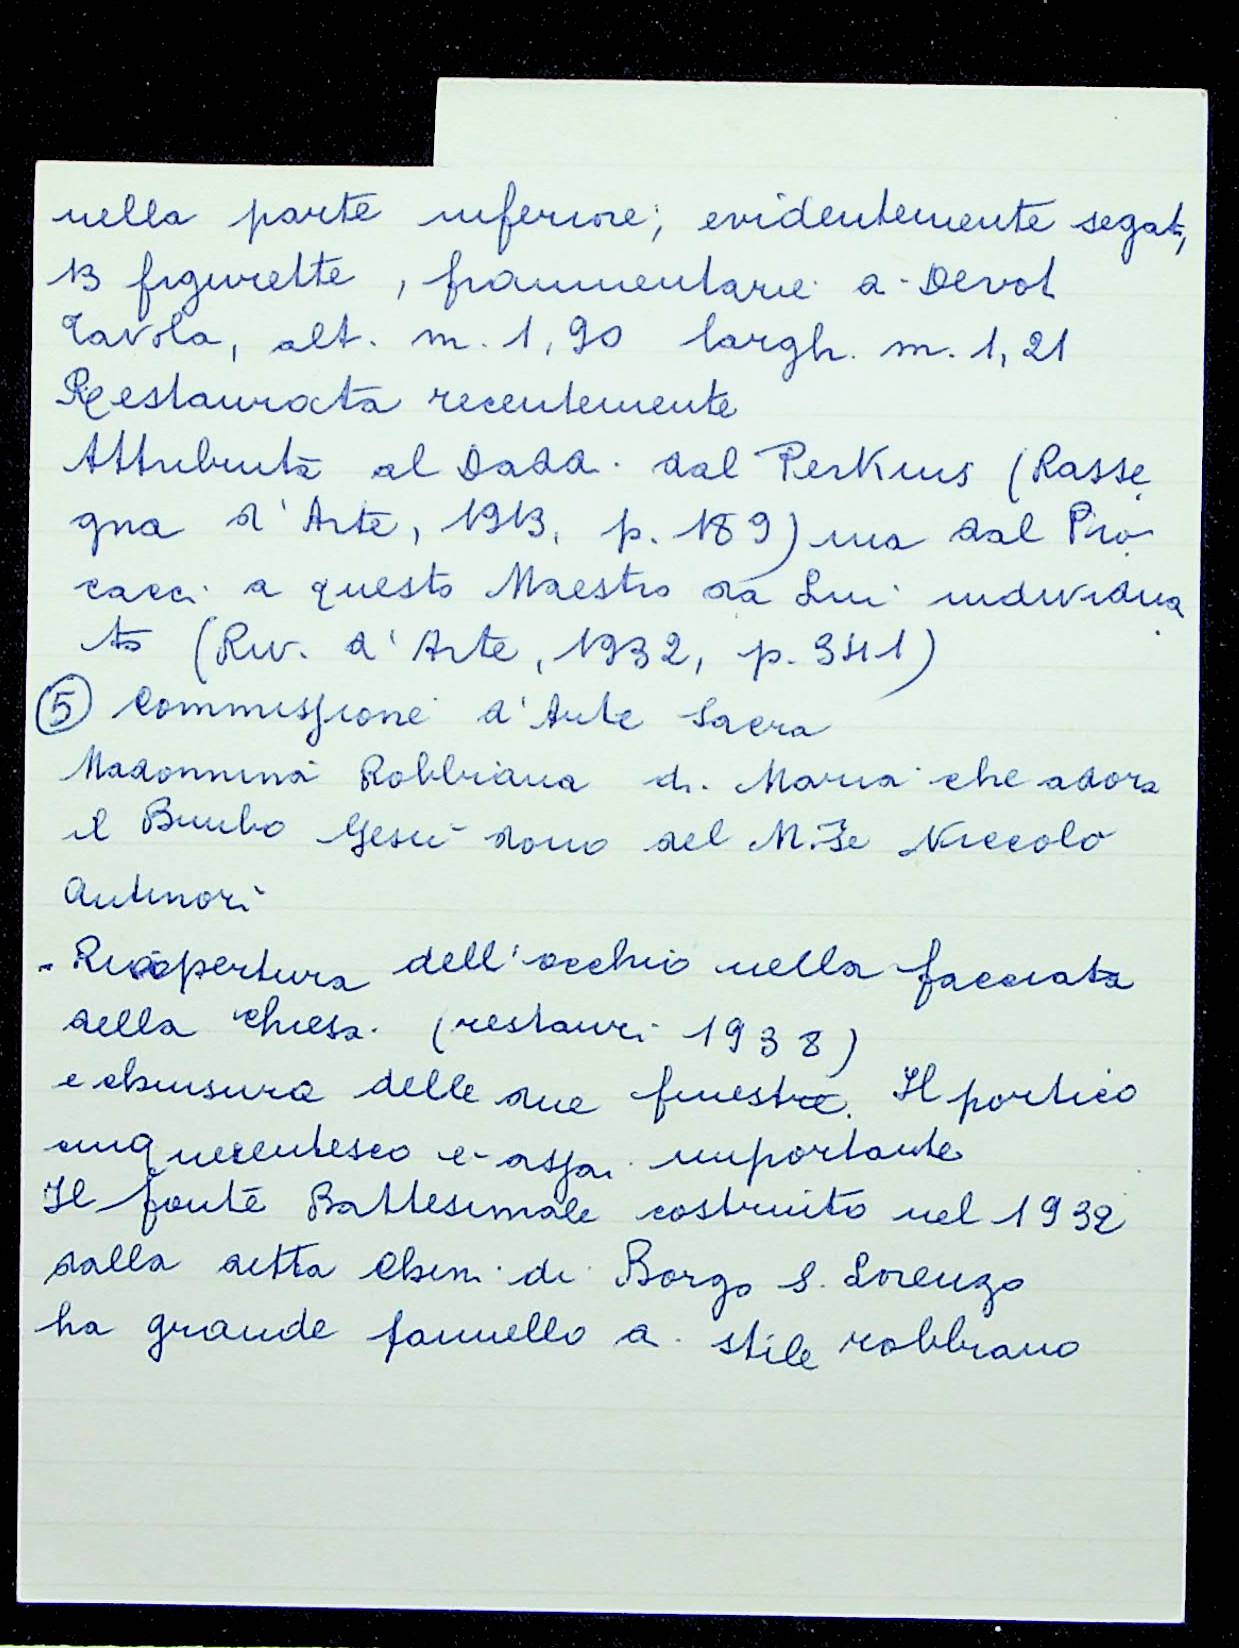 nella parte inferiore; evidentemente segat,
13 figurette, frammentarie a Devot
Tavola, alt. m. 1,90 largh. m. 1,21
Restaurata recentemente
Attribuita al Dadd. dal Perkins (Rasse
gna d'Arte, 1913, p. 189) ma dal Pro
cacci a questo Maestro da Lui individua
to (Riv. d'Arte, 1932, p. 341)
5 Commissione d'Arte Sacra
Madonnina Robbiana di Maria che adora
il Bimbo Gesù dono del M.se Niccolò
Antinori
- Riapertura dell'occhio nella facciata
della chiesa (restauri 1938)
e chiusura delle due finestre. Il portico
cinquecentesco è assai importante
Il fonte Battesimale costruito nel 1932
dalla ditta Chini di Borgo S. Lorenzo
ha grande pannello a stile robbiano